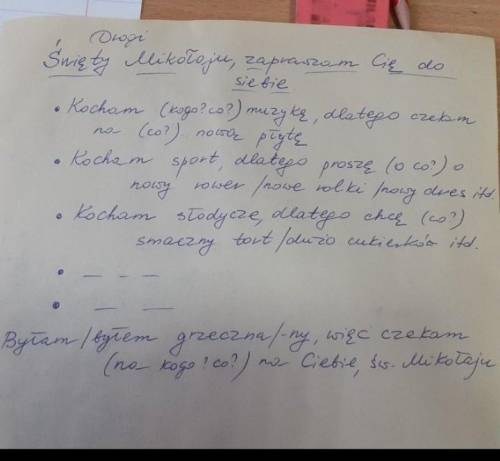 Drogi
Święty Mikołaju, zapraszam Cię do
siebie
• Kocham (kogo? co?) muzykę, dlatego czekam
na (co?) nową płytę
• Kocham sport, dlatego proszę (o co?) o
nowy rower / nowe rolki / nowy dres itd.
• Kocham słodycze, dlatego chcę (co?)
smaczny tort / dużo cukierków itd.
• — - —
• — —
Byłam / byłem grzeczna / -ny, więc czekam
(na kogo? co?) na Ciebie, św. Mikołaju